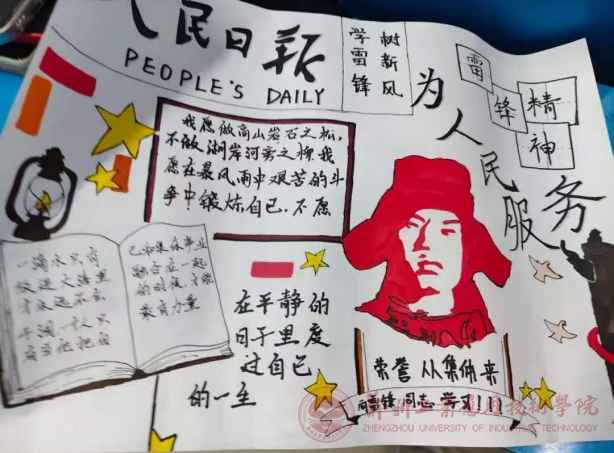 人民日报
PEOPLE'S DAILY
学雷锋
树新风
雷锋精神
为人民服务
我愿做高山岩石之松,
不做湖岸河旁之柳我
愿在暴风雨中艰苦的斗
争中锻炼自己.不愿
在平静的
日子里度
过自己
的一生
一滴水只有
放进大海里
才永远不会
干涸一个人只
有当他把自
己和集体事业
融合在一起
的时候才能
最有力量
荣誉从集体来
向雷锋同志学习!!!
郑州工业应用技术学院
ZHENGZHOU UNIVERSITY OF INDUSTRIAL TECHNOLOGY